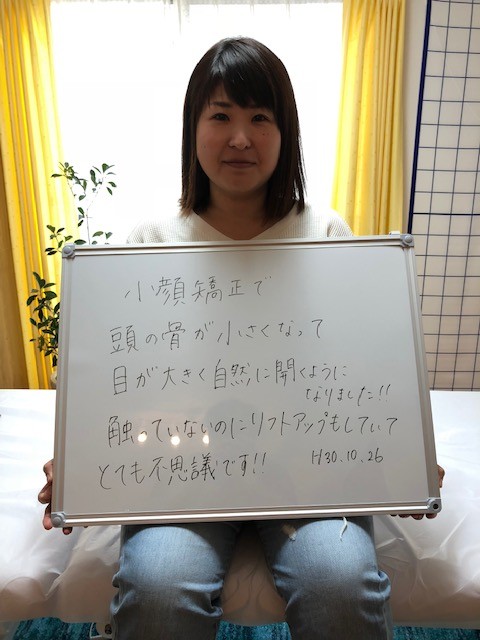 小顔矯正で
頭の骨が小さくなって
目が大きく自然に開くように
なりました!!
触っていないのにリフトアップもしていて
とても不思議です!!
H30.10.26